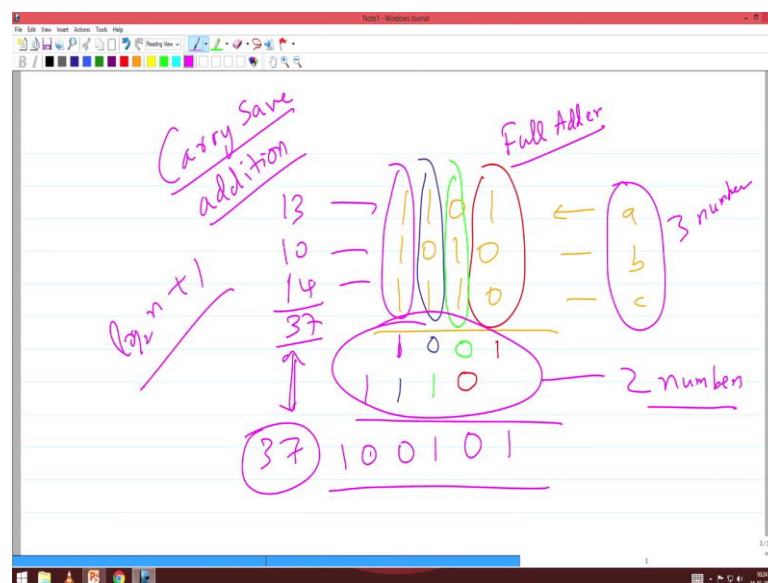 Note1 - Windows Journal
File Edit View Insert Actions Tools Help
Reading View
B I
Carry Save
addition
Full Adder
13 1 1 0 1 a
10 1 0 1 0 b
14 1 1 1 0 c
3 number
37
log₂ n + 1
1 0 0 1
1 1 1 0
2 numbers
37 1 0 0 1 0 1
1